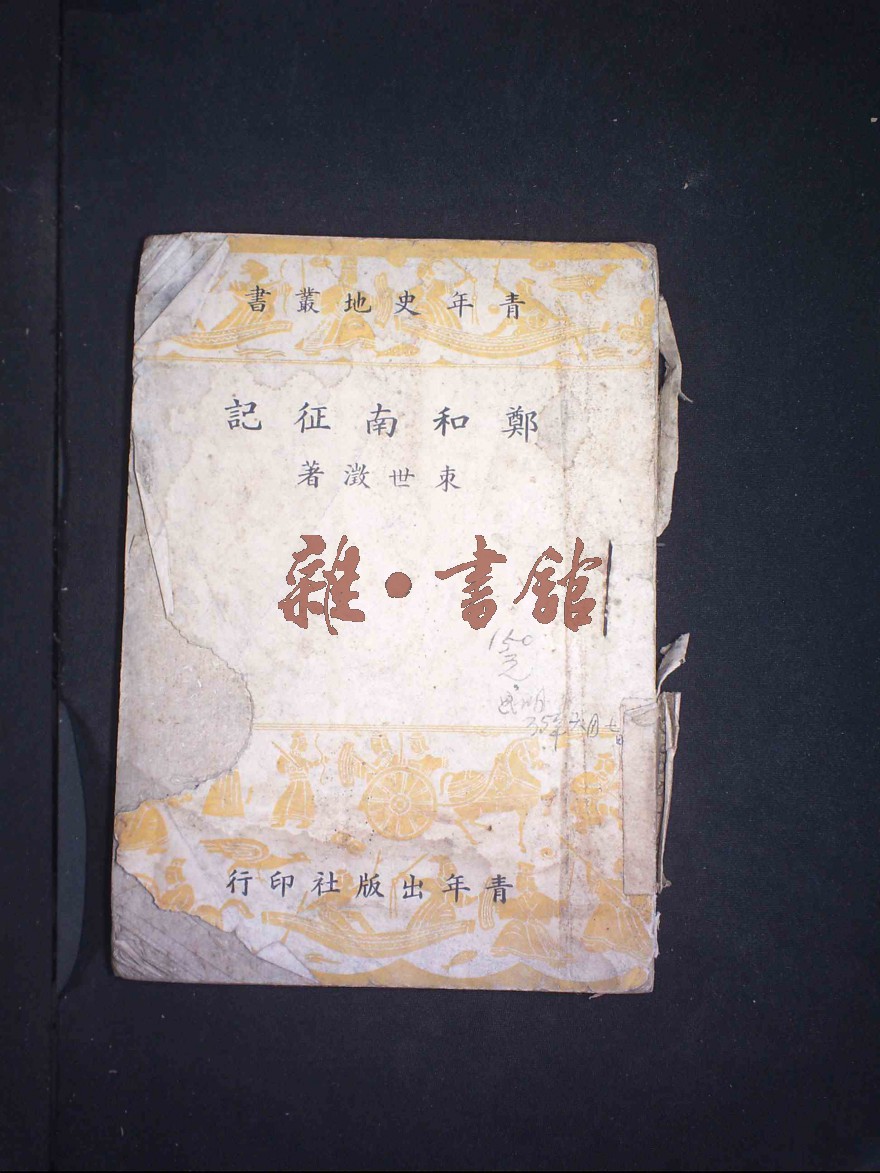 青年史地叢書
鄭和南征記
束世澂著
雜·書館
150
元
35年六月七日
青年出版社印行